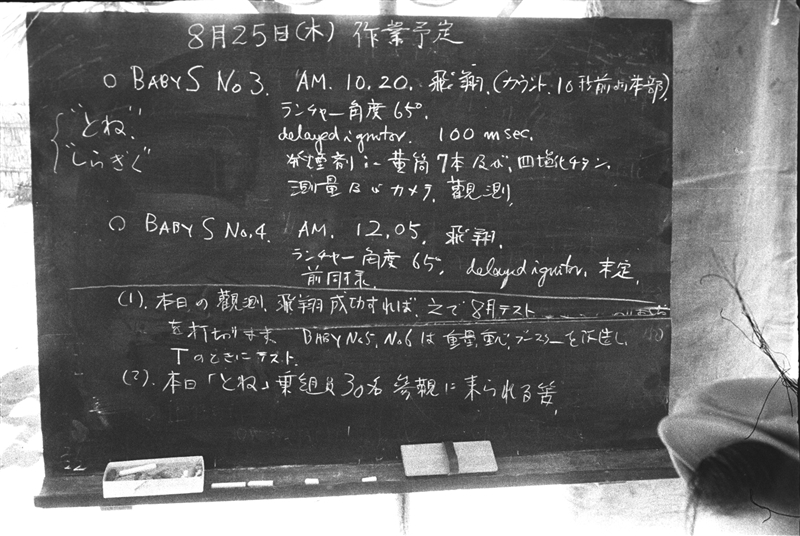 8月25日(木) 作業予定
○ BABY S No 3. AM. 10.20. 飛翔.(カウント. 10秒前より本部).
ランチャー角度 65°.
delayed ignitor. 100 msec.
発煙剤:- 黄筒 7本 及び, 四塩化チタン.
測量及びカメラ, 觀測.
"とね".
"しらぎく"
○ BABY S No. 4. AM. 12.05. 飛翔.
ランチャー角度 65°, delayed ignitor, 未定.
前同様.
(1). 本日の觀測, 飛翔成功すれば, 之で8月テスト
を打切ります BABY No5, No6 は 重量, 重心, ブースターを改造し,
Tのときにテスト.
(2). 本日「とね」乗組員30名 参観に来られる筈.